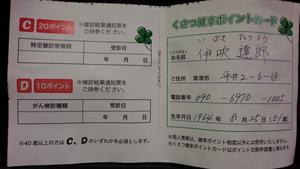 C 20ポイント
※健診結果通知票を
ご持参ください。
特定健診等種類 受診日
年 月 日
D 10ポイント
※検診結果通知票を
ご持参ください。
がん検診種類 受診日
年 月 日
※40歳以上の方はC、Dのいずれかを必須とします。
くさつ健幸ポイントカード
(ふりがな) いぶき たつろう
お名前 伊吹 達郎
ご住所 草津市 平井2-6-18
電話番号 090-6970-1005
生年月日 1964年 8月25日(51歳)
※個人情報は、健幸ポイント制度以外には使用いたしません。
※くさつ健幸ポイントカードはポイント交換申請書と兼ねます。